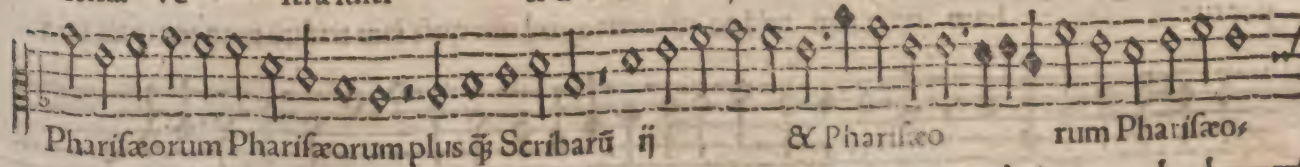 Phariſæorum Phariſæorum plus q̃ꝫ Scribarũ ij & Phariſæo rum Phariſæo⸗